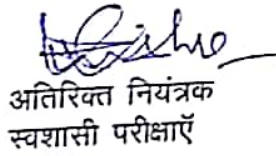 अतिरिक्त नियंत्रक
स्वशासी परीक्षाऍ